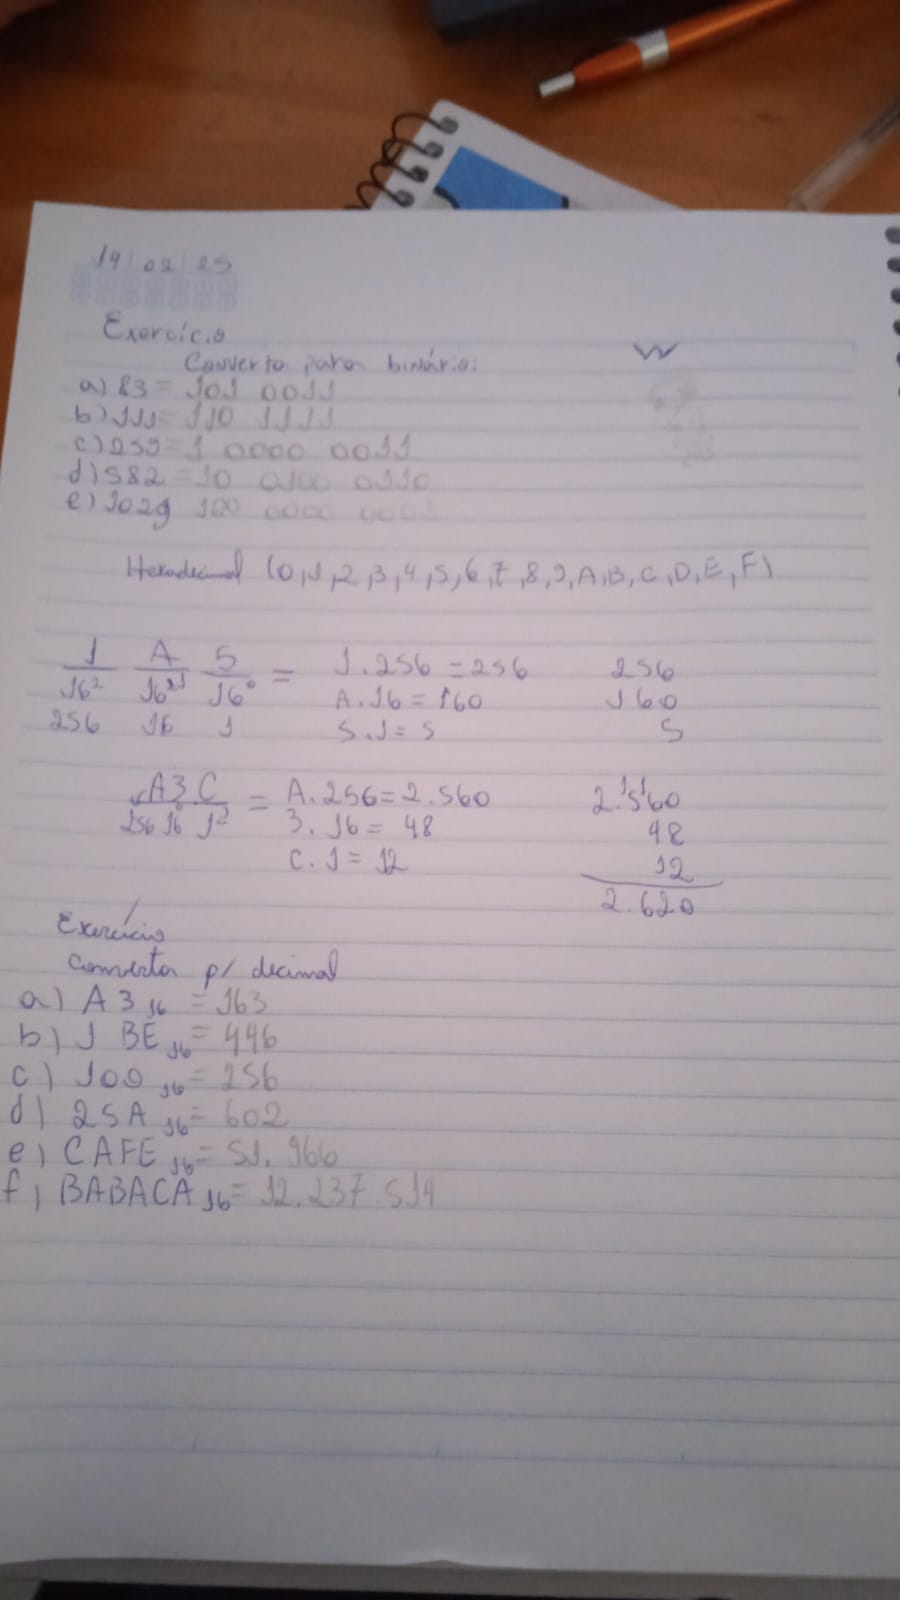 19/02/25
Exercício
Converta para binário:
a) 83 = 101 0011
b) 111 = 110 1111
c) 259 = 1 0000 0011
d) 582 = 10 0100 0110
e) 1029 100 0000 0001
Hexadecimal (0,1,2,3,4,5,6,7,8,9,A,B,C,D,E,F)
1 A 5 = 1.256 = 256 256
16² 16¹ 16⁰ A.16 = 160 160
256 16 1 5.1 = 5 5
A3C = A.256 = 2.560 2.560
256 16 1 3.16 = 48 48
C.1 = 12 12
2.620
Exercício
Converta p/ decimal
a) A3₁₆ = 163
b) 1 BE₁₆ = 446
c) 100₁₆ = 256
d) 25A₁₆ = 602
e) CAFE₁₆ = 51.966
f) BABACA₁₆ = 12.237.514